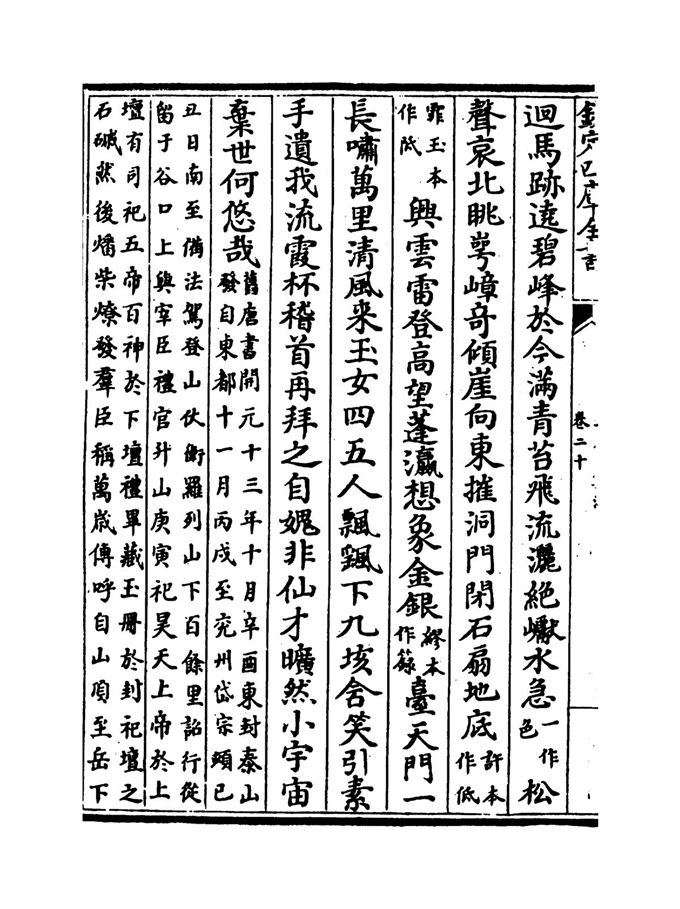 欽定四庫全書
卷二十
迴馬跡遶碧峰於今滿青苔飛流灑絕巘水急一作色松
聲哀北眺崿嶂奇傾崖向東摧洞門閉石扇地底許本作低
霏玉本作興雲雷登高望蓬瀛想象金銀繆本作籙臺天門一
長嘯萬里清風来玉女四五人飄颻下九垓含笑引素
手遺我流霞杯稽首再拜之自媿非仙才曠然小宇宙
棄世何悠哉舊唐書開元十三年十月辛酉東封泰山發自東都十一月丙戌至兖州岱宗頓已
丑日南至備法駕登山仗衛羅列山下百餘里詔行從
留于谷口上與宰臣禮官升山庚寅祀昊天上帝於上
壇有司祀五帝百神於下壇禮畢藏玉冊於封祀壇之
石磩然後燔柴燎發羣臣稱萬歲傳呼自山頂至岳下